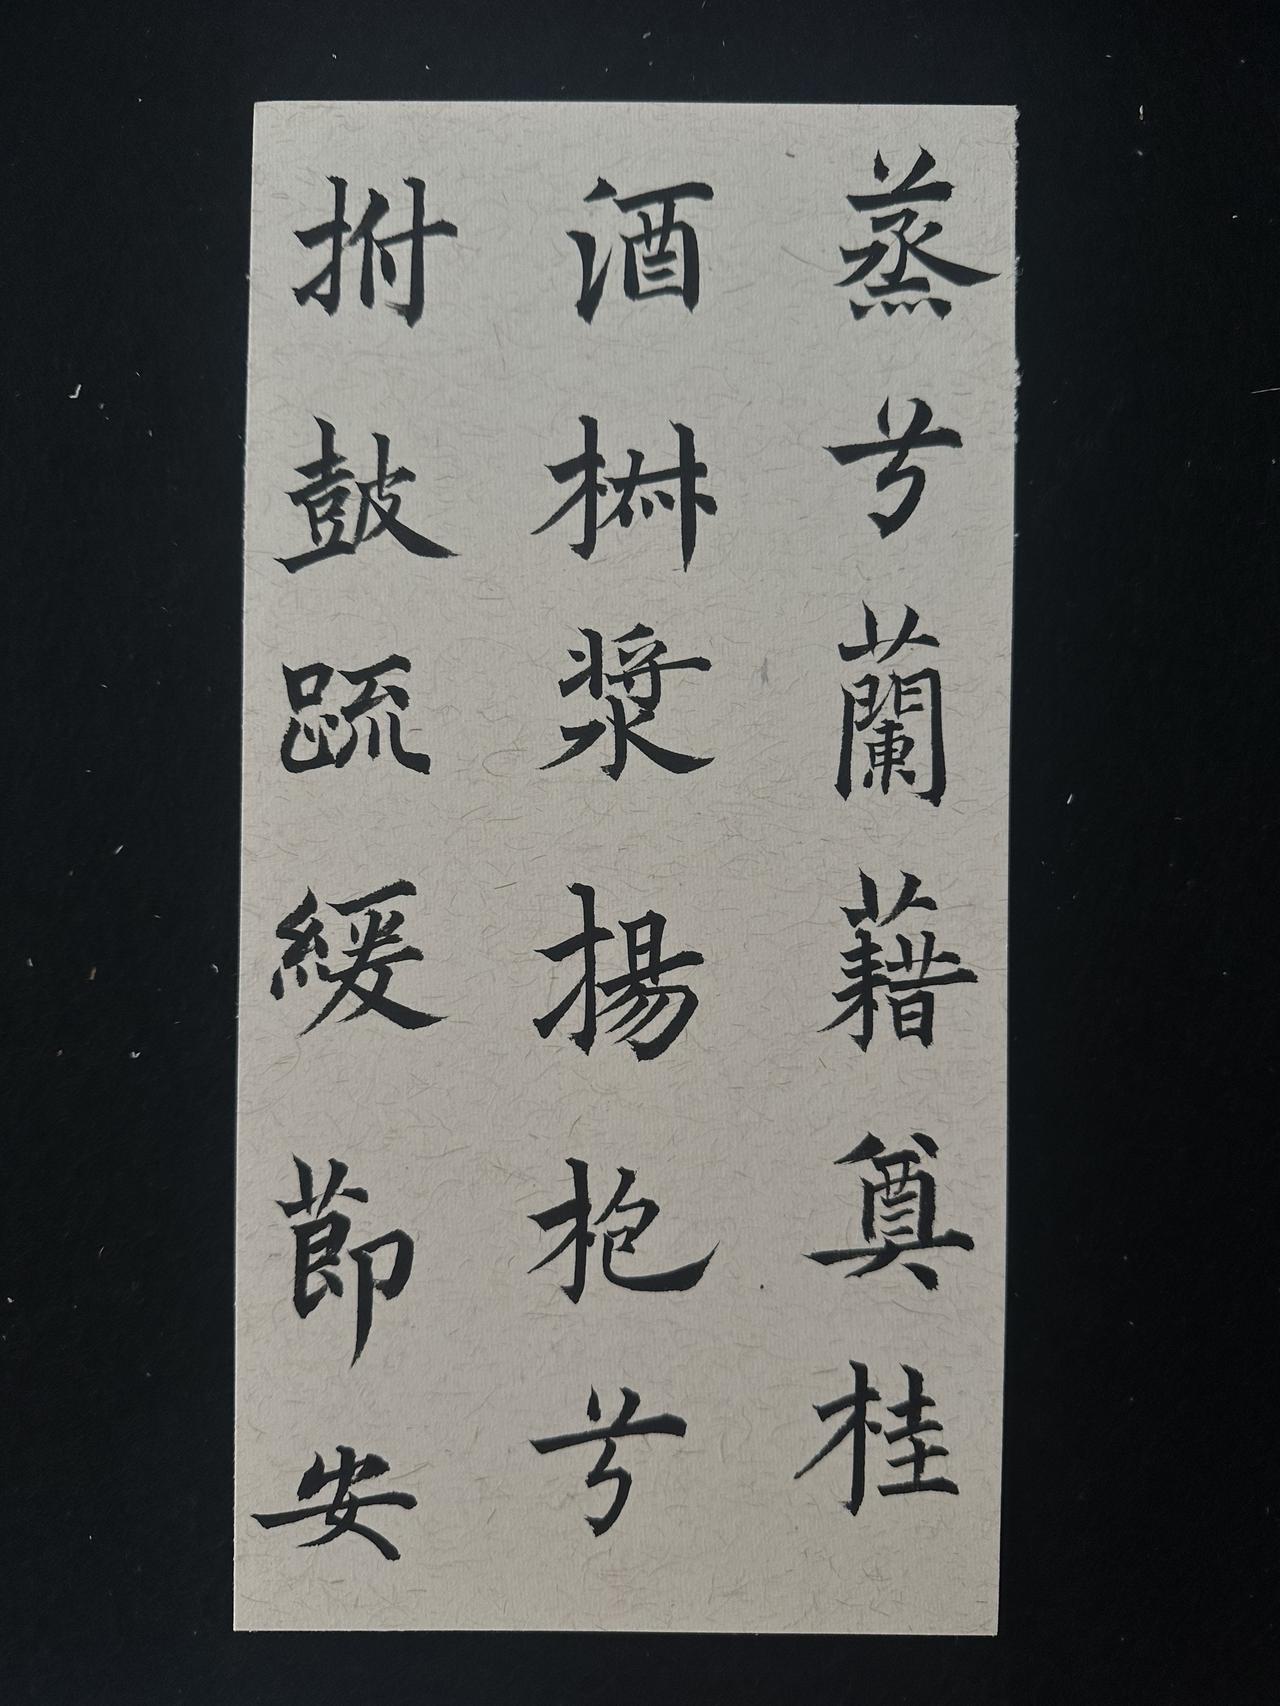 蒸兮蘭藉奠桂
酒椒漿揚枹兮
拊皷䟽緩莭安